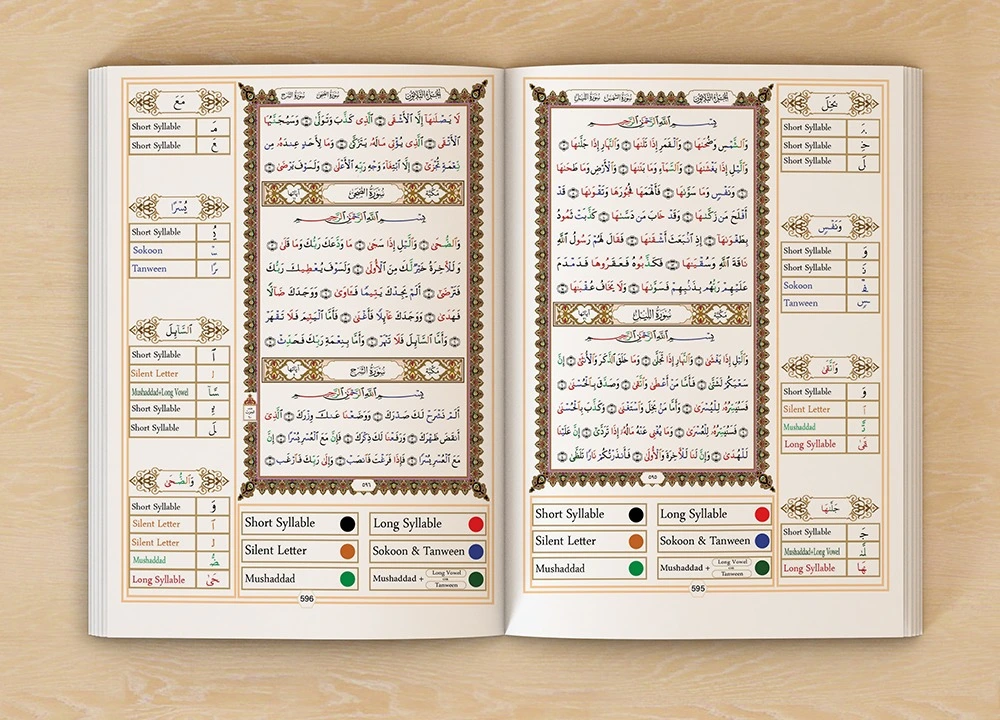 الجزء الثلاثون سورة الشمس سورة الليل
بِسْمِ ٱللَّهِ ٱلرَّحْمَٰنِ ٱلرَّحِيمِ
وَٱلشَّمْسِ وَضُحَىٰهَا ١ وَٱلْقَمَرِ إِذَا تَلَىٰهَا ٢ وَٱلنَّهَارِ إِذَا جَلَّىٰهَا ٣
وَٱلَّيْلِ إِذَا يَغْشَىٰهَا ٤ وَٱلسَّمَآءِ وَمَا بَنَىٰهَا ٥ وَٱلْأَرْضِ وَمَا طَحَىٰهَا
٦ وَنَفْسٍ وَمَا سَوَّىٰهَا ٧ فَأَلْهَمَهَا فُجُورَهَا وَتَقْوَىٰهَا ٨ قَدْ
أَفْلَحَ مَن زَكَّىٰهَا ٩ وَقَدْ خَابَ مَن دَسَّىٰهَا ١٠ كَذَّبَتْ ثَمُودُ
بِطَغْوَىٰهَآ ١١ إِذِ ٱنۢبَعَثَ أَشْقَىٰهَا ١٢ فَقَالَ لَهُمْ رَسُولُ ٱللَّهِ
نَاقَةَ ٱللَّهِ وَسُقْيَٰهَا ١٣ فَكَذَّبُوهُ فَعَقَرُوهَا فَدَمْدَمَ
عَلَيْهِمْ رَبُّهُم بِذَنۢبِهِمْ فَسَوَّىٰهَا ١٤ وَلَا يَخَافُ عُقْبَٰهَا ١٥
مكية سورة الليل آياتها
بِسْمِ ٱللَّهِ ٱلرَّحْمَٰنِ ٱلرَّحِيمِ
وَٱلَّيْلِ إِذَا يَغْشَىٰ ١ وَٱلنَّهَارِ إِذَا تَجَلَّىٰ ٢ وَمَا خَلَقَ ٱلذَّكَرَ وَٱلْأُنثَىٰٓ ٣ إِنَّ
سَعْيَكُمْ لَشَتَّىٰ ٤ فَأَمَّا مَنْ أَعْطَىٰ وَٱتَّقَىٰ ٥ وَصَدَّقَ بِٱلْحُسْنَىٰ
٦ فَسَنُيَسِّرُهُۥ لِلْيُسْرَىٰ ٧ وَأَمَّا مَنۢ بَخِلَ وَٱسْتَغْنَىٰ ٨ وَكَذَّبَ بِٱلْحُسْنَىٰ
٩ فَسَنُيَسِّرُهُۥ لِلْعُسْرَىٰ ١٠ وَمَا يُغْنِي عَنْهُ مَالُهُۥٓ إِذَا تَرَدَّىٰٓ ١١ إِنَّ عَلَيْنَا
لَلْهُدَىٰ ١٢ وَإِنَّ لَنَا لَلْءَاخِرَةَ وَٱلْأُولَىٰ ١٣ فَأَنذَرْتُكُمْ نَارًا تَلَظَّىٰ ١٤
٥٩٥
بَخِلَ
Short Syllable بَـ
Short Syllable خِـ
Short Syllable لَ
وَنَفْسٍ
Short Syllable وَ
Short Syllable نَـ
Sokoon فْـ
Tanween سٍ
وَٱتَّقَىٰ
Short Syllable وَ
Silent Letter ٱ
Mushaddad تَّـ
Long Syllable قَىٰ
جَلَّىٰهَا
Short Syllable جَـ
Mushaddad+Long Vowel لَّىٰ
Long Syllable هَا
Short Syllable Long Syllable
Silent Letter Sokoon & Tanween
Mushaddad Mushaddad + Long Vowel Tanween
595
الجزء الثلاثون سورة الضحى سورة الشرح
لَا يَصْلَىٰهَآ إِلَّا ٱلْأَشْقَى ١٥ ٱلَّذِى كَذَّبَ وَتَوَلَّىٰ ١٦ وَسَيُجَنَّبُهَا
ٱلْأَتْقَى ١٧ ٱلَّذِى يُؤْتِى مَالَهُۥ يَتَزَكَّىٰ ١٨ وَمَا لِأَحَدٍ عِندَهُۥ مِن
نِّعْمَةٍ تُجْزَىٰٓ ١٩ إِلَّا ٱبْتِغَآءَ وَجْهِ رَبِّهِ ٱلْأَعْلَىٰ ٢٠ وَلَسَوْفَ يَرْضَىٰ ٢١
مكية سورة الضحى آياتها
بِسْمِ ٱللَّهِ ٱلرَّحْمَٰنِ ٱلرَّحِيمِ
وَٱلضُّحَىٰ ١ وَٱلَّيْلِ إِذَا سَجَىٰ ٢ مَا وَدَّعَكَ رَبُّكَ وَمَا قَلَىٰ ٣
وَلَلْءَاخِرَةُ خَيْرٌ لَّكَ مِنَ ٱلْأُولَىٰ ٤ وَلَسَوْفَ يُعْطِيكَ رَبُّكَ
فَتَرْضَىٰٓ ٥ أَلَمْ يَجِدْكَ يَتِيمًا فَـَٔاوَىٰ ٦ وَوَجَدَكَ ضَآلًّا
فَهَدَىٰ ٧ وَوَجَدَكَ عَآئِلًا فَأَغْنَىٰ ٨ فَأَمَّا ٱلْيَتِيمَ فَلَا تَقْهَرْ
٩ وَأَمَّا ٱلسَّآئِلَ فَلَا تَنْهَرْ ١٠ وَأَمَّا بِنِعْمَةِ رَبِّكَ فَحَدِّثْ ١١
مكية سورة الشرح آياتها
بِسْمِ ٱللَّهِ ٱلرَّحْمَٰنِ ٱلرَّحِيمِ
أَلَمْ نَشْرَحْ لَكَ صَدْرَكَ ١ وَوَضَعْنَا عَنكَ وِزْرَكَ ٢ ٱلَّذِىٓ
أَنقَضَ ظَهْرَكَ ٣ وَرَفَعْنَا لَكَ ذِكْرَكَ ٤ فَإِنَّ مَعَ ٱلْعُسْرِ يُسْرًا ٥ إِنَّ
مَعَ ٱلْعُسْرِ يُسْرًا ٦ فَإِذَا فَرَغْتَ فَٱنصَبْ ٧ وَإِلَىٰ رَبِّكَ فَٱرْغَب ٨
٥٩٦
مَعَ
Short Syllable مَـ
Short Syllable عَ
يُسْرًا
Short Syllable يُـ
Sokoon سْـ
Tanween رًا
ٱلسَّآئِلَ
Short Syllable أَ
Silent Letter لـ
Mushaddad+Long Vowel سَّآ
Short Syllable ئِـ
Short Syllable لَ
وَٱلضُّحَىٰ
Short Syllable وَ
Silent Letter ٱ
Silent Letter لـ
Mushaddad ضُّـ
Long Syllable حَىٰ
Short Syllable Long Syllable
Silent Letter Sokoon & Tanween
Mushaddad Mushaddad + Long Vowel Tanween
596